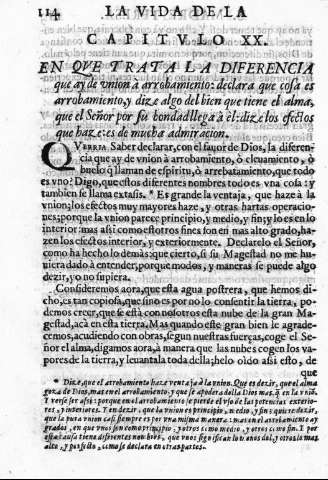 114 LA VIDA DE LA
CAPITVLO XX.
EN QVE TRATA LA DIFERENCIA
que ay de vnion à arrobamiento: declara que cosa es
arrobamiento, y dize algo del bien que tiene el alma,
que el Señor por su bondad llega à èl: dize los efectos
que haze: es de mucha admiracion.
QVERRIA Saber declarar, con el fauor de Dios, la diferen-
cia que ay de vnion à arrobamiento, ò eleuamiento, ò
buelo q̃ llaman de espiritu, ò arrebatamiento, que todo
es vno? Digo, que estos diferentes nombres todo es vna cosa: y
tambien se llama extasis. * Es grande la ventaja, que haze à la
vnion; los efectos muy mayores haze, y otras hartas operacio-
nes; porque la vnion parece principio, y medio, y fin; y lo es en lo
interior: mas assi como estotros fines son en mas alto grado, ha-
zen los efectos interior, y exteriormente. Declarelo el Señor,
como ha hecho lo demàs: que cierto, si su Magestad no me hu-
uiera dado à entender, porque modos, y maneras se puede algo
dezir, yo no supiera.
Consideremos aora, que esta agua postrera, que hemos di-
cho, es tan copiosa, que sino es por no lo consentir la tierra, po-
demos creer, que se està con nosotros esta nube de la gran Ma-
gestad, acà en esta tierra. Mas quando este gran bien le agrade-
cemos, acudiendo con obras, segun nuestras fuerças, coge el Se-
ñor el alma, digamos aora, à manera que las nubes cogen los va-
pores de la tierra, y leuantala toda della; helo oldo assi esto, de
que
* Dize, que el arrobamiento haze ventaja à la vnion. Que es dezir, que el alma
goza de Dios, mas en el arrobamiento, y que se apodera della Dios mas, q̃ en la vniõ.
Y verse ser assi: porque en el arrobamiento se pierde el vso de las potencias exterio-
res, y interiores. Y en dezir, que la vnion es principio, medio, y fin: quiere dezir,
que la pura vnion casi siempre es por vna misma manera: mas en el arrobamiento ay
grados, en que vnos son como principio, y otros como medio, y otros como fin. Y por
esta causa tiene diferentes nombres, que vnos significan lo menos del, y otros lo mas
alto, y perfecto, como se declara en otras partes.